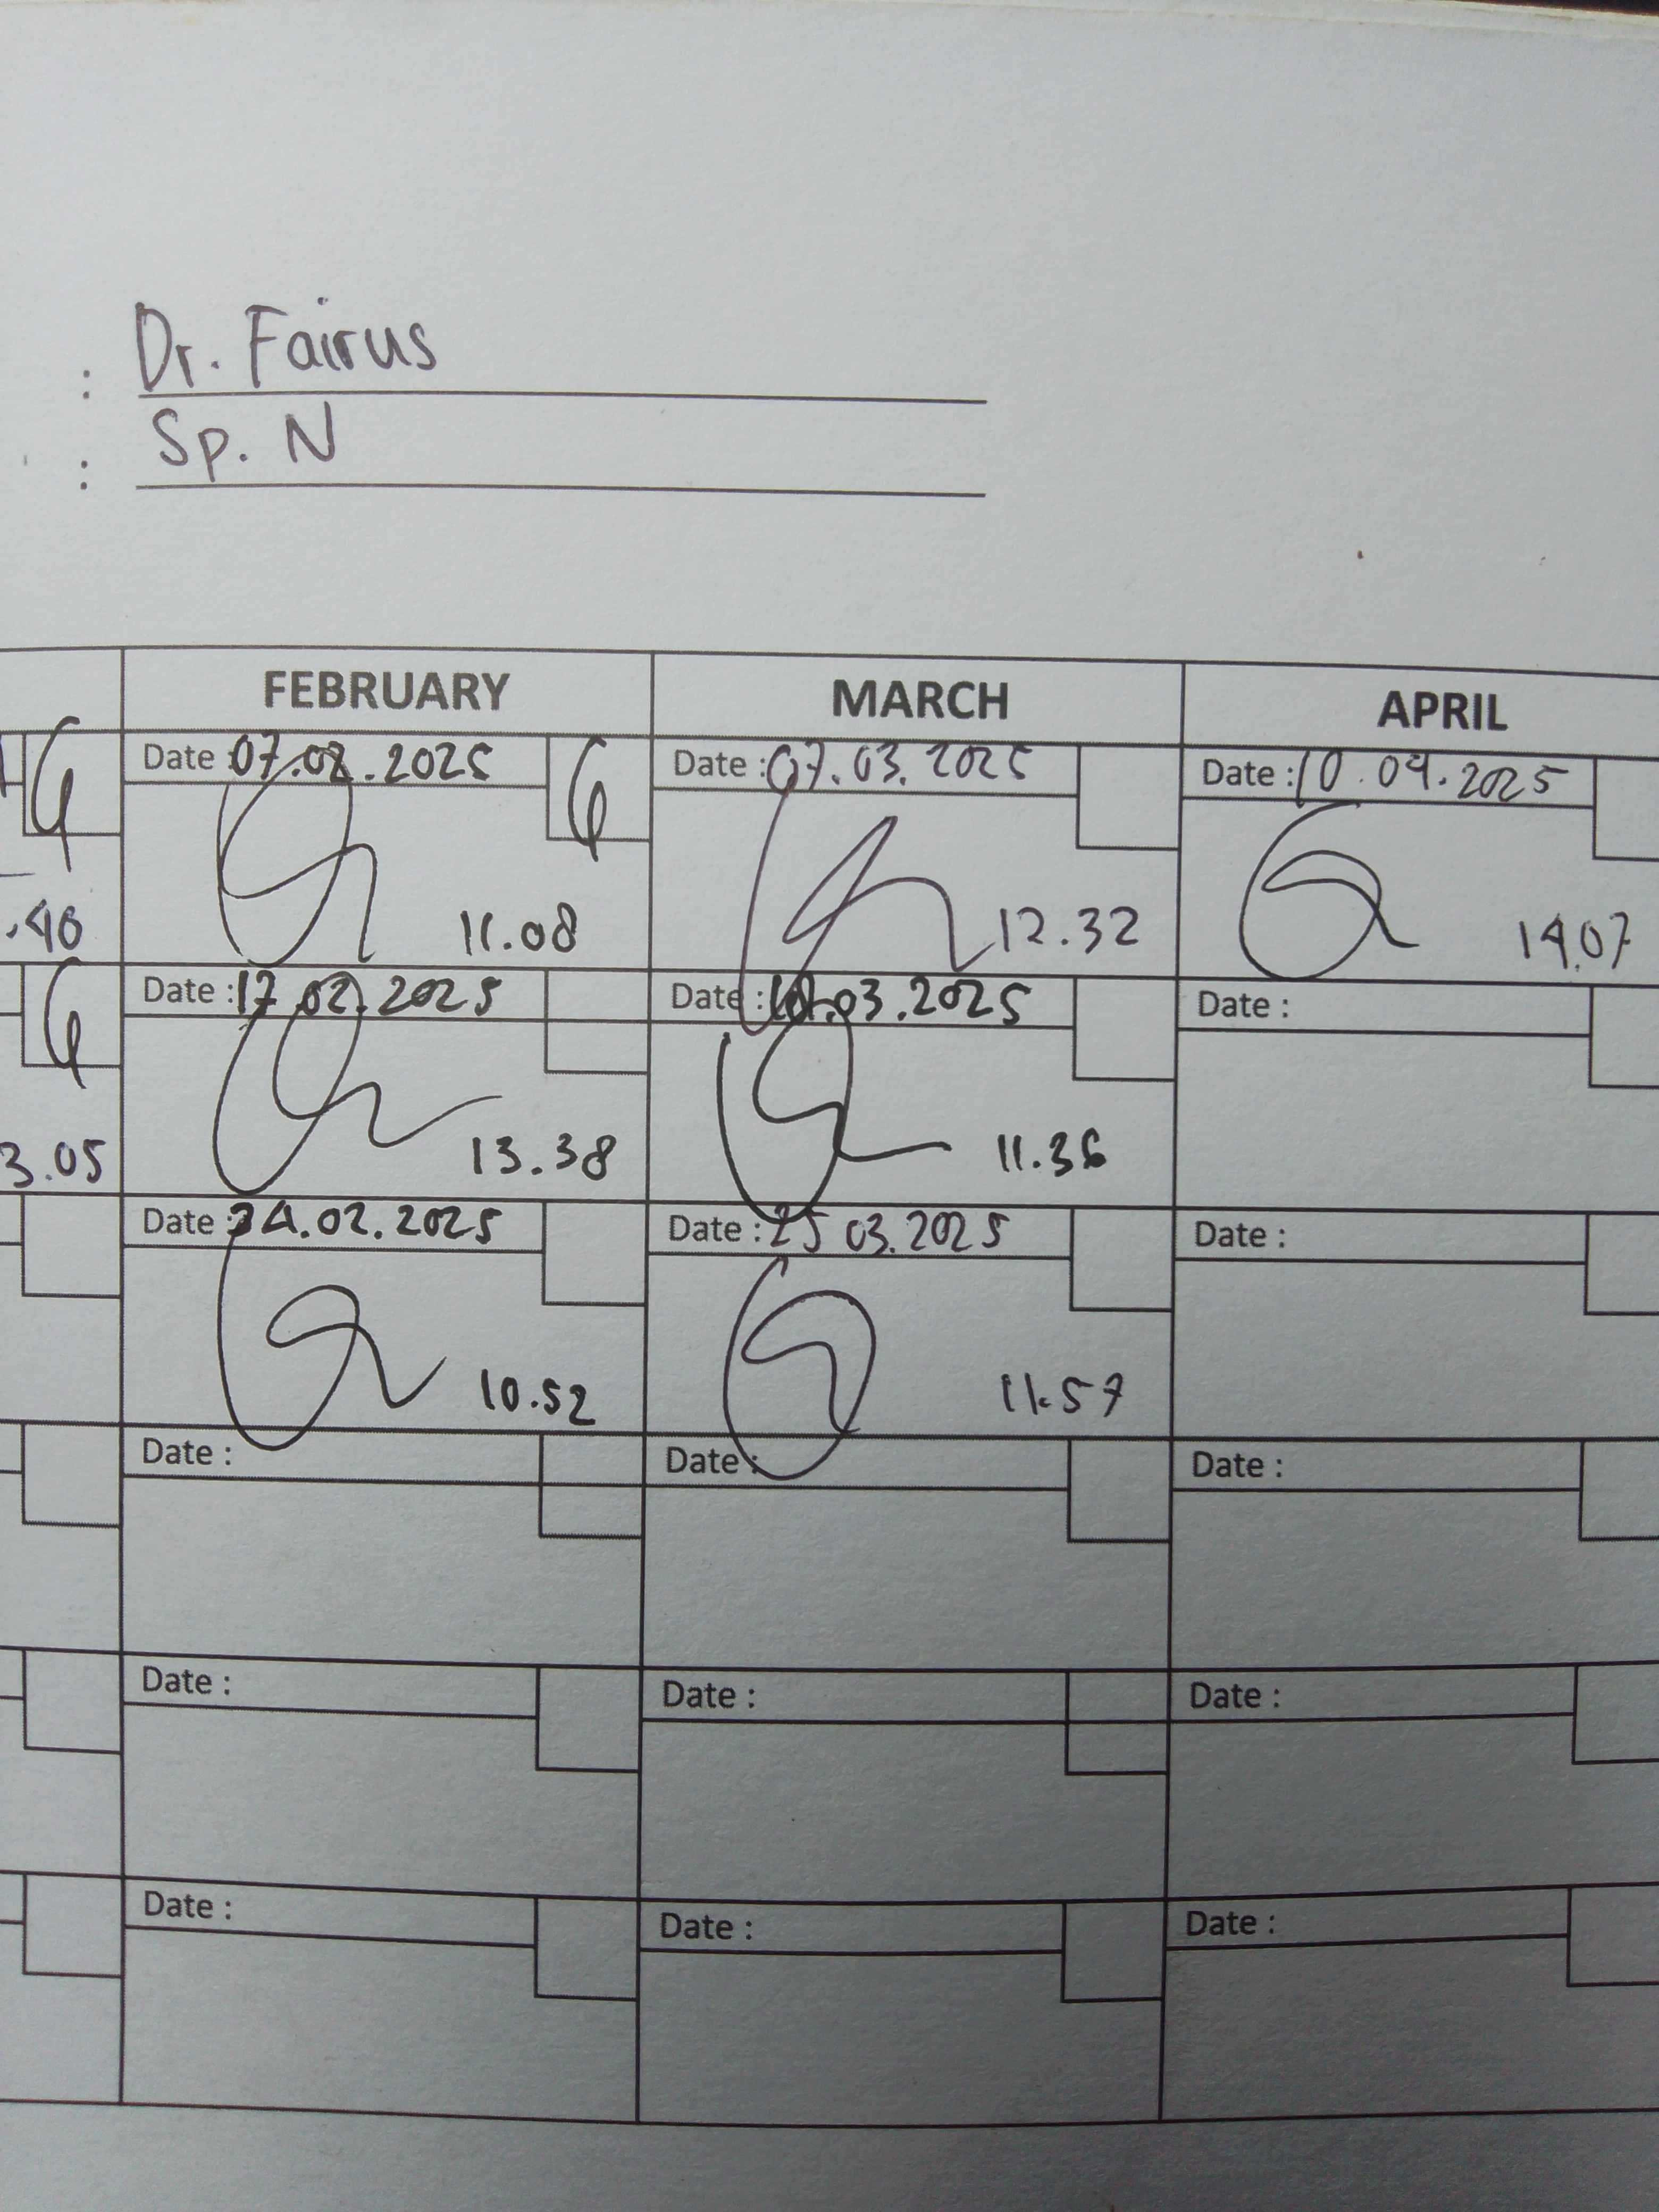 : Dr. Fairus
: Sp. N
FEBRUARY MARCH APRIL
Date : 07.02.2025 Date : 07.03.2025 Date : 10.04.2025
.40 11.08 12.32 14.07
Date : 17.02.2025 Date : .03.2025 Date :
3.05 13.38 11.36
Date : 24.02.2025 Date : 25 03.2025 Date :
10.52 11.57
Date : Date : Date :
Date : Date : Date :
Date : Date : Date :